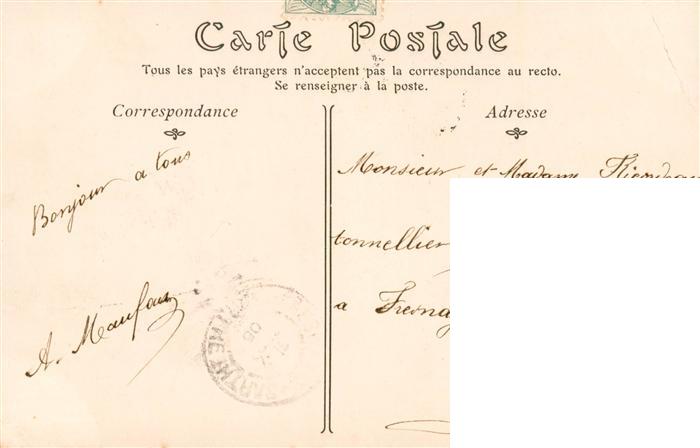 Carte Postale
Tous les pays étrangers n'acceptent pas la correspondance au recto.
Se renseigner à la poste.
Correspondance
Adresse
Bonjour a tous
A.
Monsieur et Madame
tonnellier
a
SARTHE
06